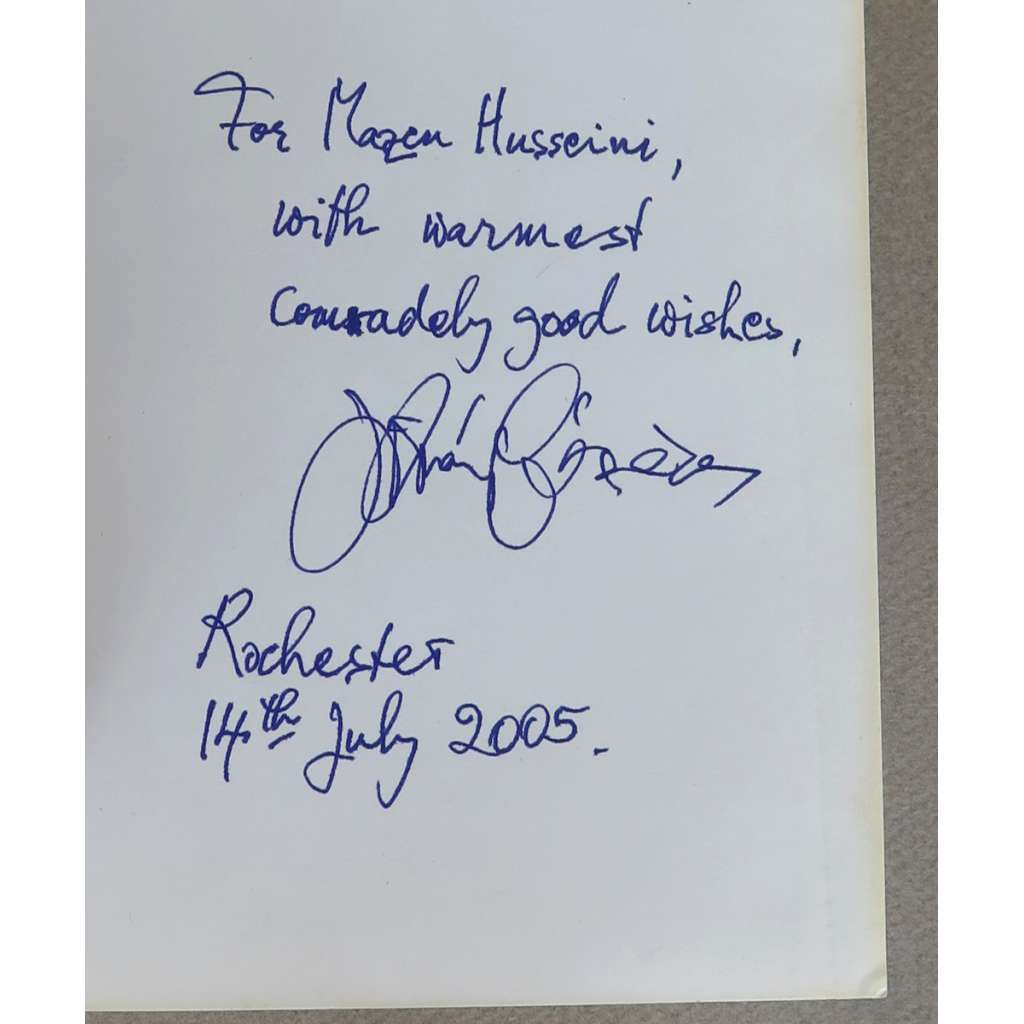 For Mazen Husseini,
with warmest
comradely good wishes,
István Mészáros
Rochester
14th July 2005.